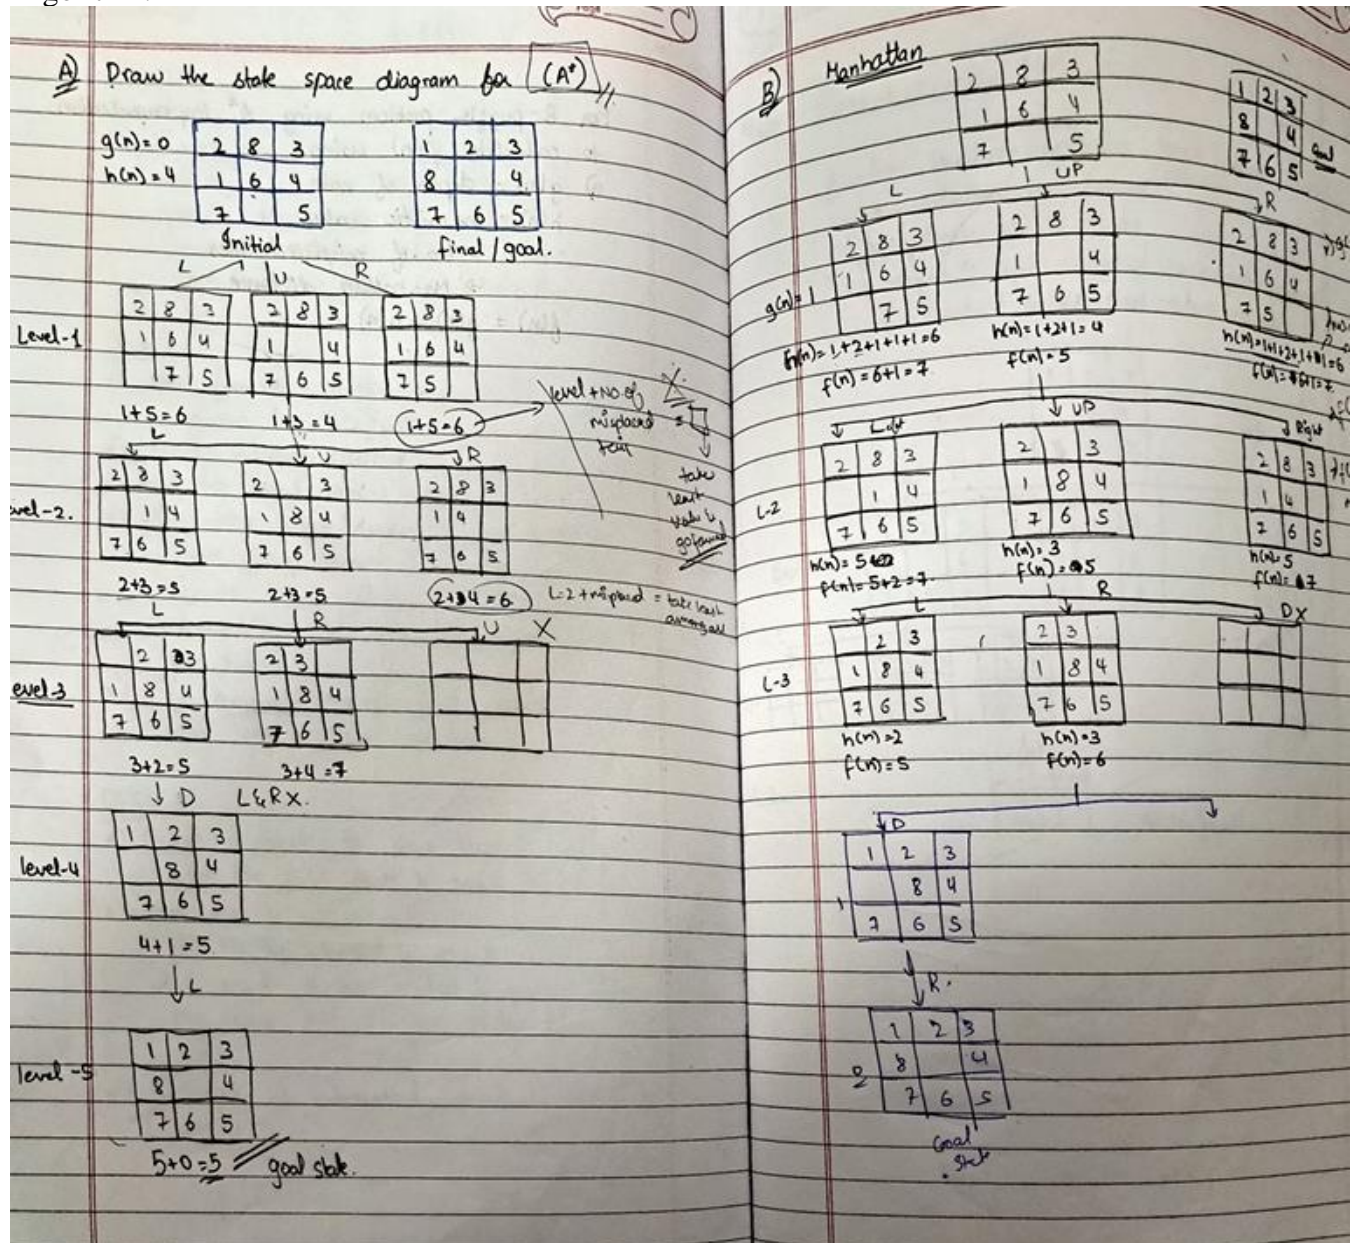 A) Draw the state space diagram for (A*)
g(n)=0
h(n)=4
2 8 3
1 6 4
7 5
Initial
1 2 3
8 4
7 6 5
final/goal.
L U R
Level-1
2 8 3
1 6 4
7 5
2 8 3
1 4
7 6 5
2 8 3
1 6 4
7 5
1+5=6
1+3=4
1+5=6
level+No.of
misplaced
=
take
least
L U R
level-2.
2 8 3
1 4
7 6 5
2 3
1 8 4
7 6 5
2 8 3
1 4
7 6 5
2+3=5
2+3=5
2+4=6
L=2+misplaced = take least
L R U X
level-3
2 3
1 8 4
7 6 5
2 3
1 8 4
7 6 5
3+2=5
3+4=7
D L&R X.
level-4
1 2 3
8 4
7 6 5
4+1=5
L
level-5
1 2 3
8 4
7 6 5
5+0=5
goal state.
B) Manhattan
2 8 3
1 6 4
7 5
1 2 3
8 4
7 6 5
Goal
L UP R
g(n)=1
2 8 3
1 6 4
7 5
2 8 3
1 4
7 6 5
2 8 3
1 6 4
7 5
h(n)=1+2+1+1+1=6
f(n)=6+1=7
h(n)=1+2+1=4
f(n)=5
h(n)=1+1+2+1+1=6
Left UP Right
L-2
2 8 3
1 4
7 6 5
2 3
1 8 4
7 6 5
2 8 3
1 4
7 6 5
h(n)=5
f(n)=5+2=7.
h(n)=3
f(n)=5
h(n)=5
f(n)=7
L R D X
L-3
2 3
1 8 4
7 6 5
2 3
1 8 4
7 6 5
h(n)=2
f(n)=5
h(n)=3
f(n)=6
D
1 2 3
8 4
7 6 5
1
R.
1 2 3
8 4
7 6 5
0
Goal
State